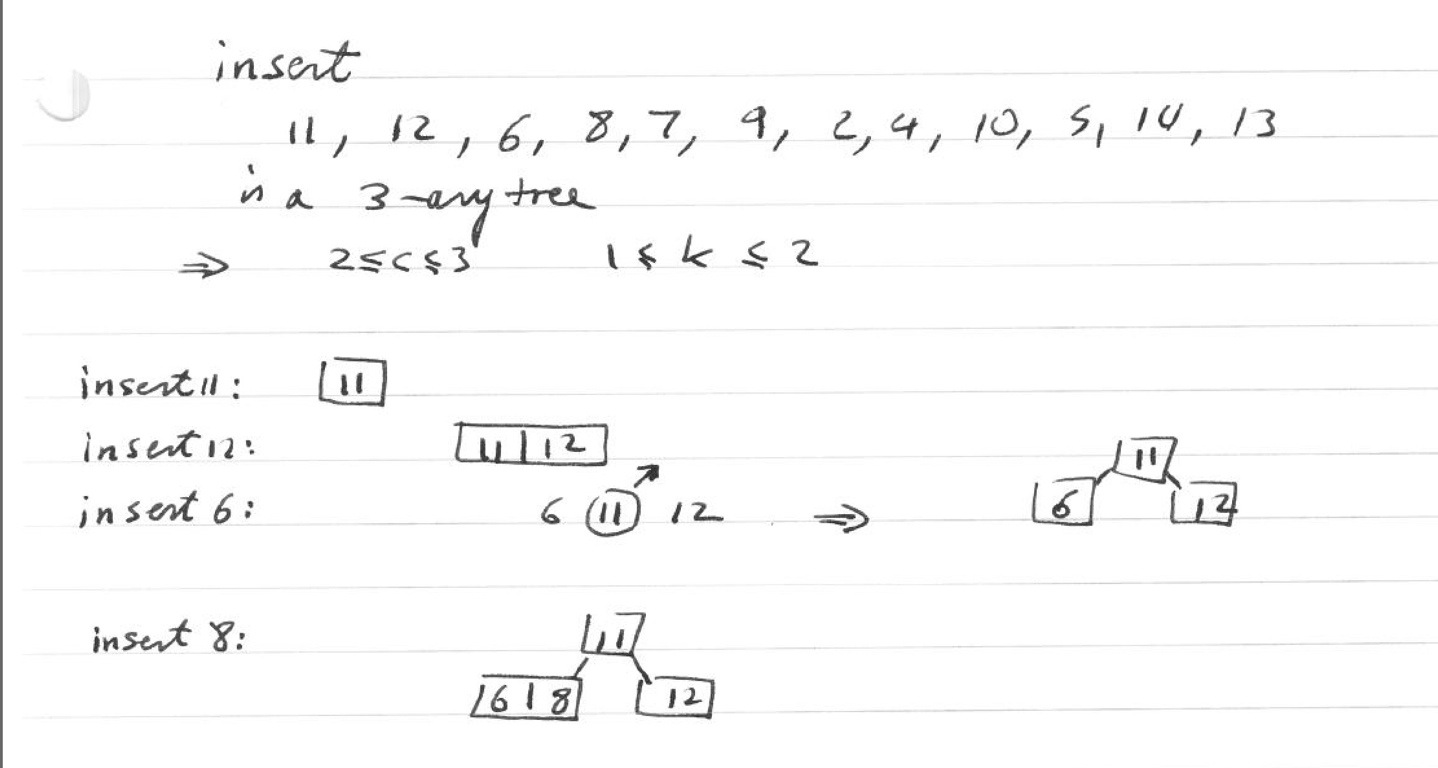 insert
11, 12, 6, 8, 7, 9, 2, 4, 10, 5, 14, 13
in a 3-ary tree
⇒ 2≤c≤3 1≤k≤2
insert 11: 11
insert 12: 11|12
insert 6: 6 11 12 ⇒ 11
6 12
insert 8: 11
6|8 12